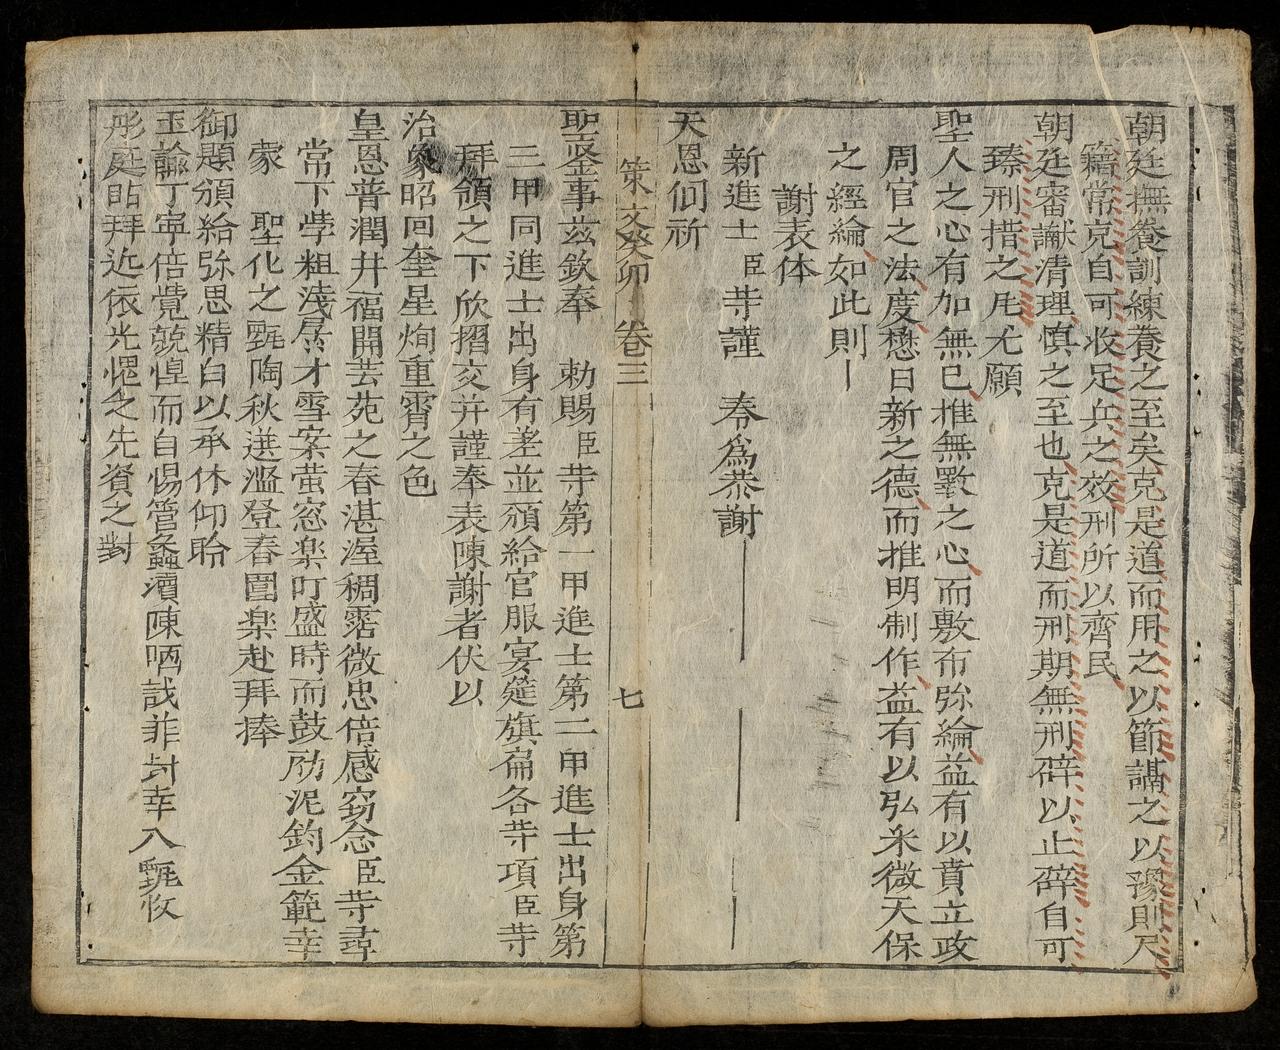 朝廷撫養訓練養之至矣克是道而用之以節謀之以豫則尺
籍常克自可收足兵之效刑所以齊民
朝廷審讞清理慎之至也克是道而刑期無刑碎以止碎自可
臻刑措之尤願
聖人之心有加無已推無斁之心而敷布弥綸益有以賁立政
周官之法度懋日新之德而推明制作益有以弘米微天保
之經綸如此則
謝表体
新進士臣寺謹 奉為恭謝
天恩伺祈
策文癸卯 卷三 七
聖鋈事兹欽奉 勅賜臣寺第一甲進士第二甲進士出身第
三甲同進士出身有差並頒給官服宴筵旗匾各寺項臣寺
拜領之下欣摺交并謹奉表陳謝者伏以
治象昭回奎星炳重霄之色
皇恩普潤井福開芸苑之春湛渥稠霑微忠倍感窃念臣寺尋
常下学粗浅孱才雪案萤窓楽叮盛時而鼓励泥鈞金範幸
蒙 聖化之甄陶秋選濫登春圍楽赴拜捧
御題頒給弥思精白以承休仰聆
玉諭丁寧倍覺兢惶而自惕管蠡瀆陳哂菲封幸入甄收
彤庭旹拜近依光愧之先資之對